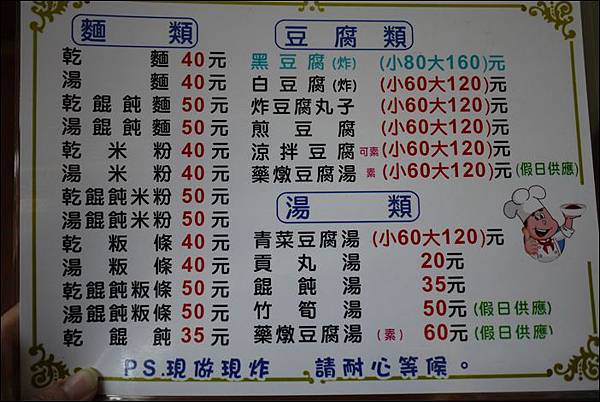 麵類
乾麵 40元
湯麵 40元
乾餛飩麵 50元
湯餛飩麵 50元
乾米粉 40元
湯米粉 40元
乾餛飩米粉 50元
湯餛飩米粉 50元
乾粄條 40元
湯粄條 40元
乾餛飩粄條 50元
湯餛飩粄條 50元
乾餛飩 35元
豆腐類
黑豆腐(炸) (小80大160)元
白豆腐(炸) (小60大120)元
炸豆腐丸子 (小60大120)元
煎豆腐 (小60大120)元
涼拌豆腐 可素 (小60大120)元
藥燉豆腐湯 素 (小60大120)元 (假日供應)
湯類
青菜豆腐湯 (小60大120)元
貢丸湯 20元
餛飩湯 35元
竹筍湯 50元 (假日供應)
藥燉豆腐湯 (素) 60元 (假日供應)
PS.現做現炸 請耐心等候。